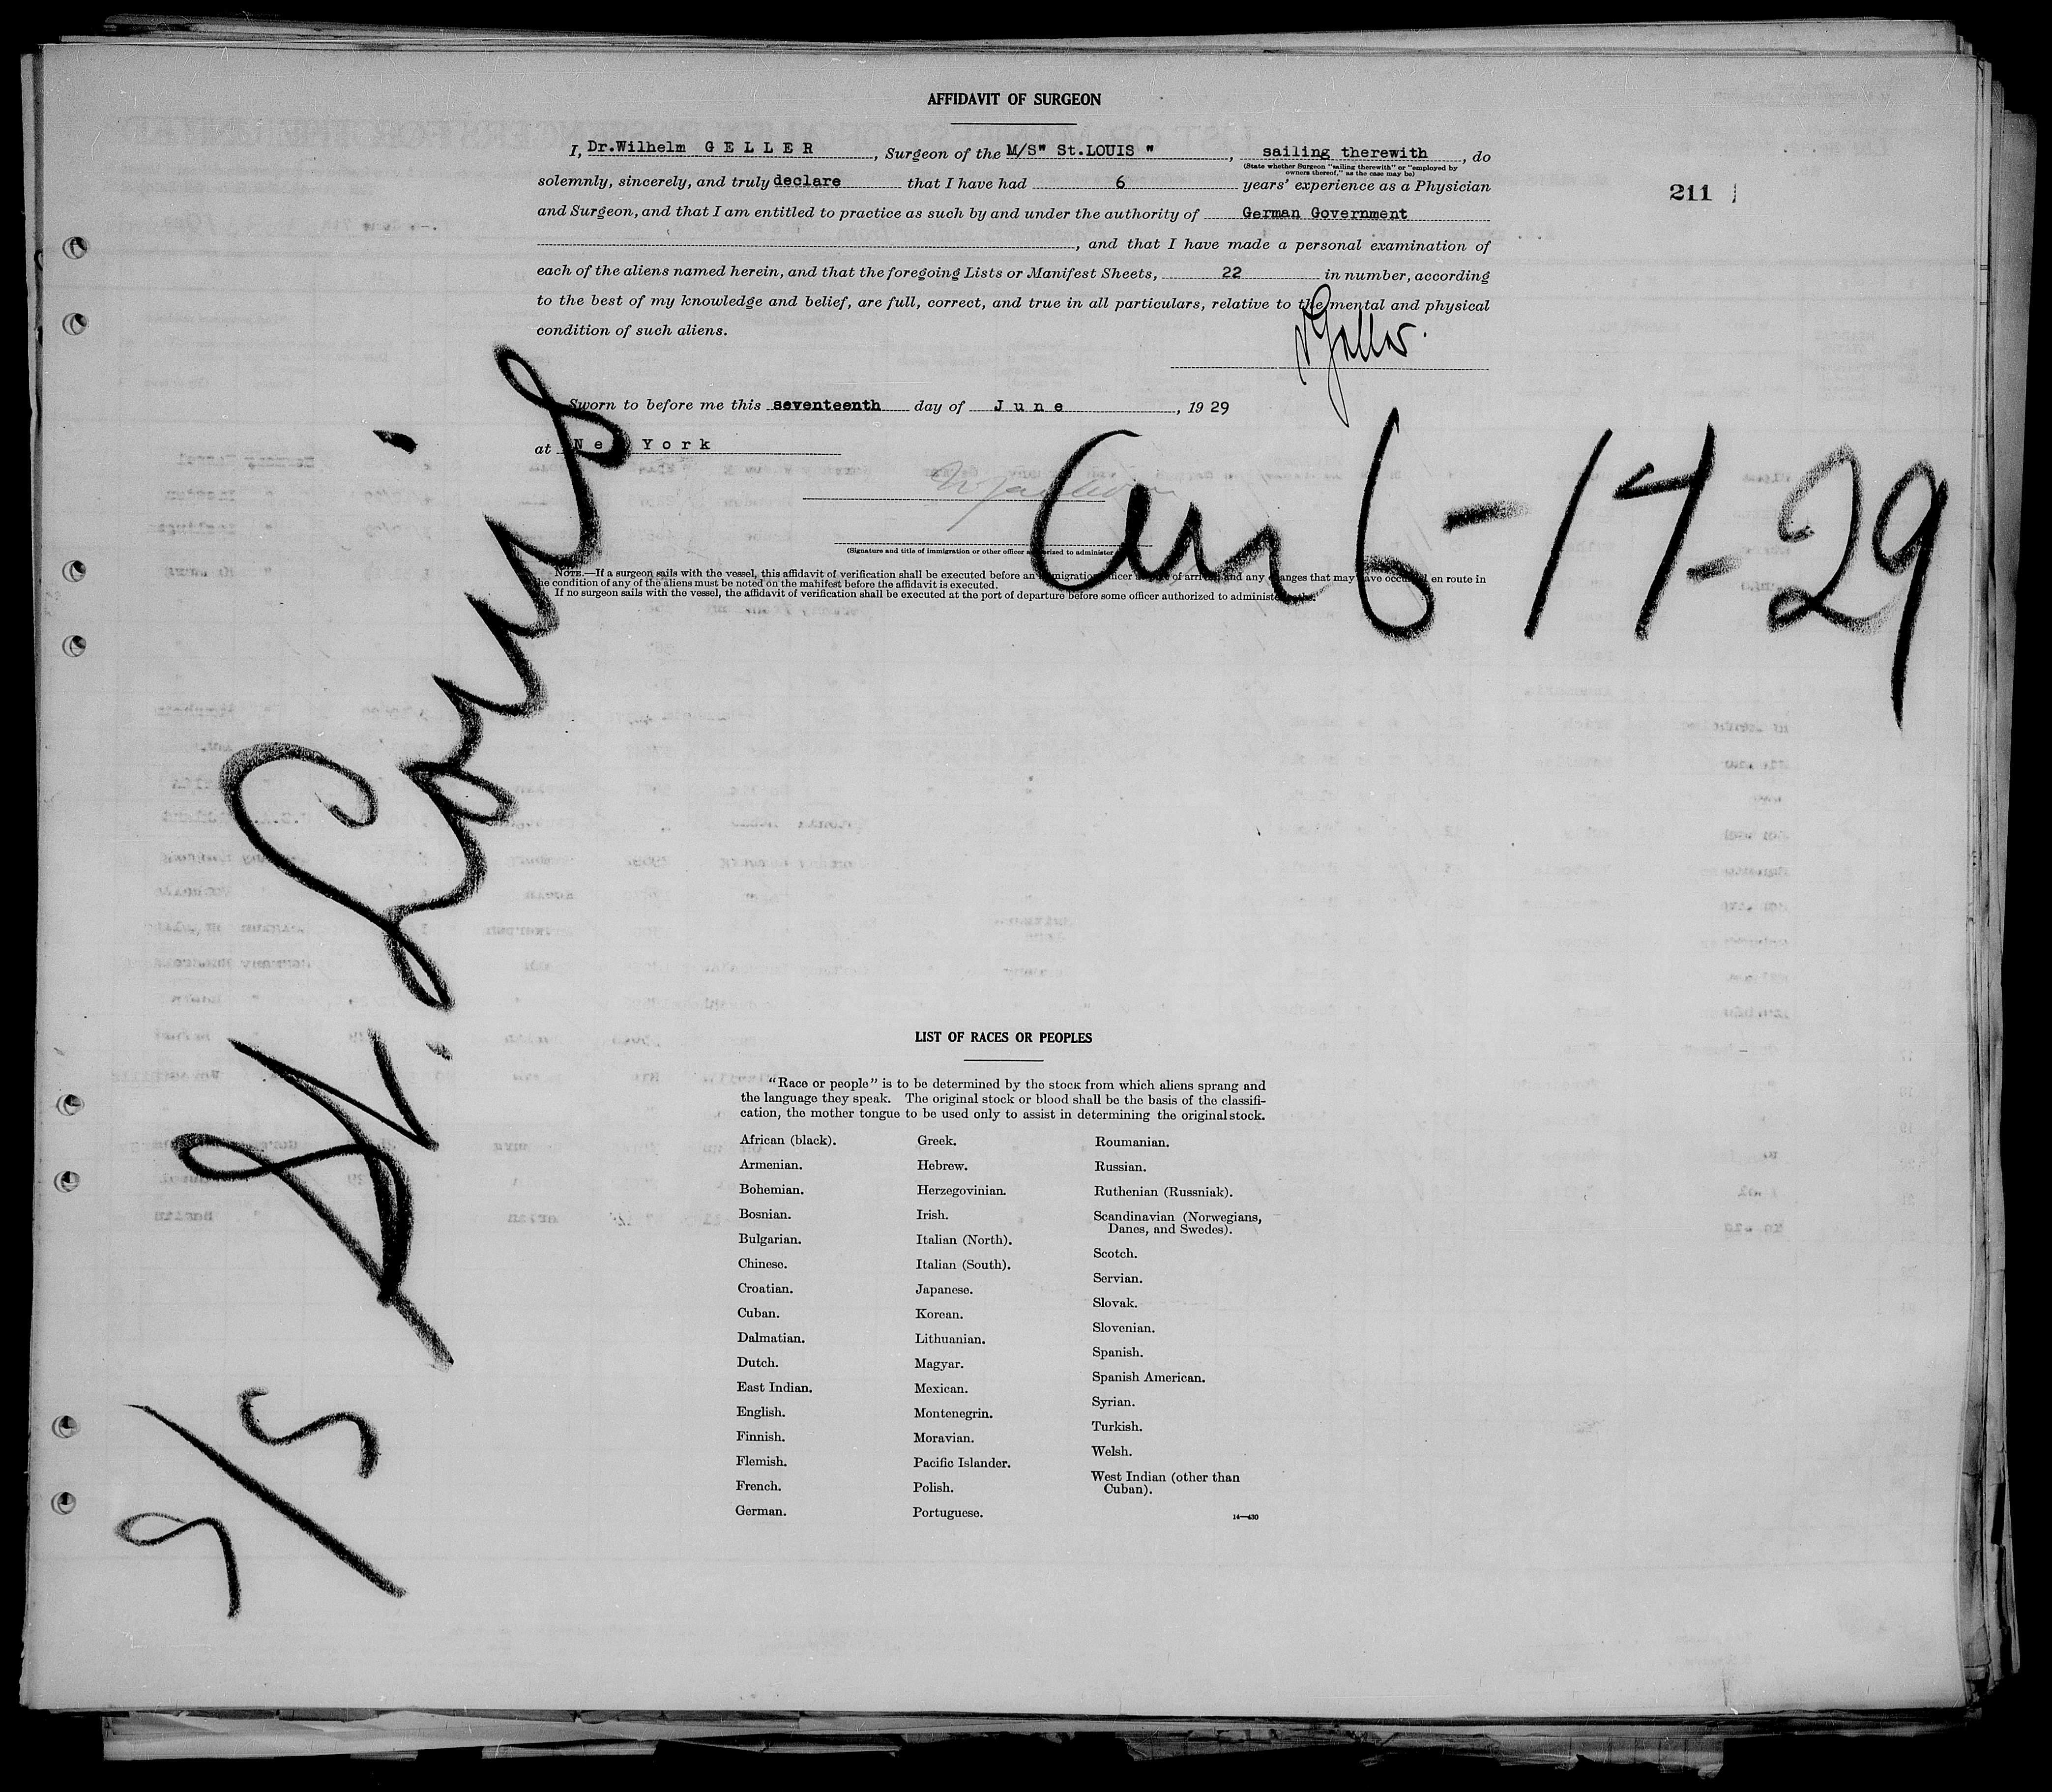 AFFIDAVIT OF SURGEON
I, Dr.Wilhelm G E L L E R , Surgeon of the M/S" St.LOUIS " , sailing therewith , do
(State whether Surgeon "sailing therewith" or "employed by
owners thereof," as the case may be)
solemnly, sincerely, and truly declare that I have had 6 years' experience as a Physician
211
and Surgeon, and that I am entitled to practice as such by and under the authority of German Government
, and that I have made a personal examination of
each of the aliens named herein, and that the foregoing Lists or Manifest Sheets, 22 in number, according
to the best of my knowledge and belief, are full, correct, and true in all particulars, relative to the mental and physical
condition of such aliens.
Geller.
Sworn to before me this seventeenth day of J u n e , 19 29
at N e w Y o r k
Arr 6-17-29
(Signature and title of immigration or other officer authorized to administer
NOTE.—If a surgeon sails with the vessel, this affidavit of verification shall be executed before an immigration officer at port of arrival and any changes that may have occurred en route in
the condition of any of the aliens must be noted on the manifest before the affidavit is executed.
If no surgeon sails with the vessel, the affidavit of verification shall be executed at the port of departure before some officer authorized to administer oaths.
S/S St. Louis
LIST OF RACES OR PEOPLES
"Race or people" is to be determined by the stock from which aliens sprang and
the language they speak. The original stock or blood shall be the basis of the classifi-
cation, the mother tongue to be used only to assist in determining the original stock.
African (black).
Armenian.
Bohemian.
Bosnian.
Bulgarian.
Chinese.
Croatian.
Cuban.
Dalmatian.
Dutch.
East Indian.
English.
Finnish.
Flemish.
French.
German.
Greek.
Hebrew.
Herzegovinian.
Irish.
Italian (North).
Italian (South).
Japanese.
Korean.
Lithuanian.
Magyar.
Mexican.
Montenegrin.
Moravian.
Pacific Islander.
Polish.
Portuguese.
Roumanian.
Russian.
Ruthenian (Russniak).
Scandinavian (Norwegians,
Danes, and Swedes).
Scotch.
Servian.
Slovak.
Slovenian.
Spanish.
Spanish American.
Syrian.
Turkish.
Welsh.
West Indian (other than
Cuban).
14—430